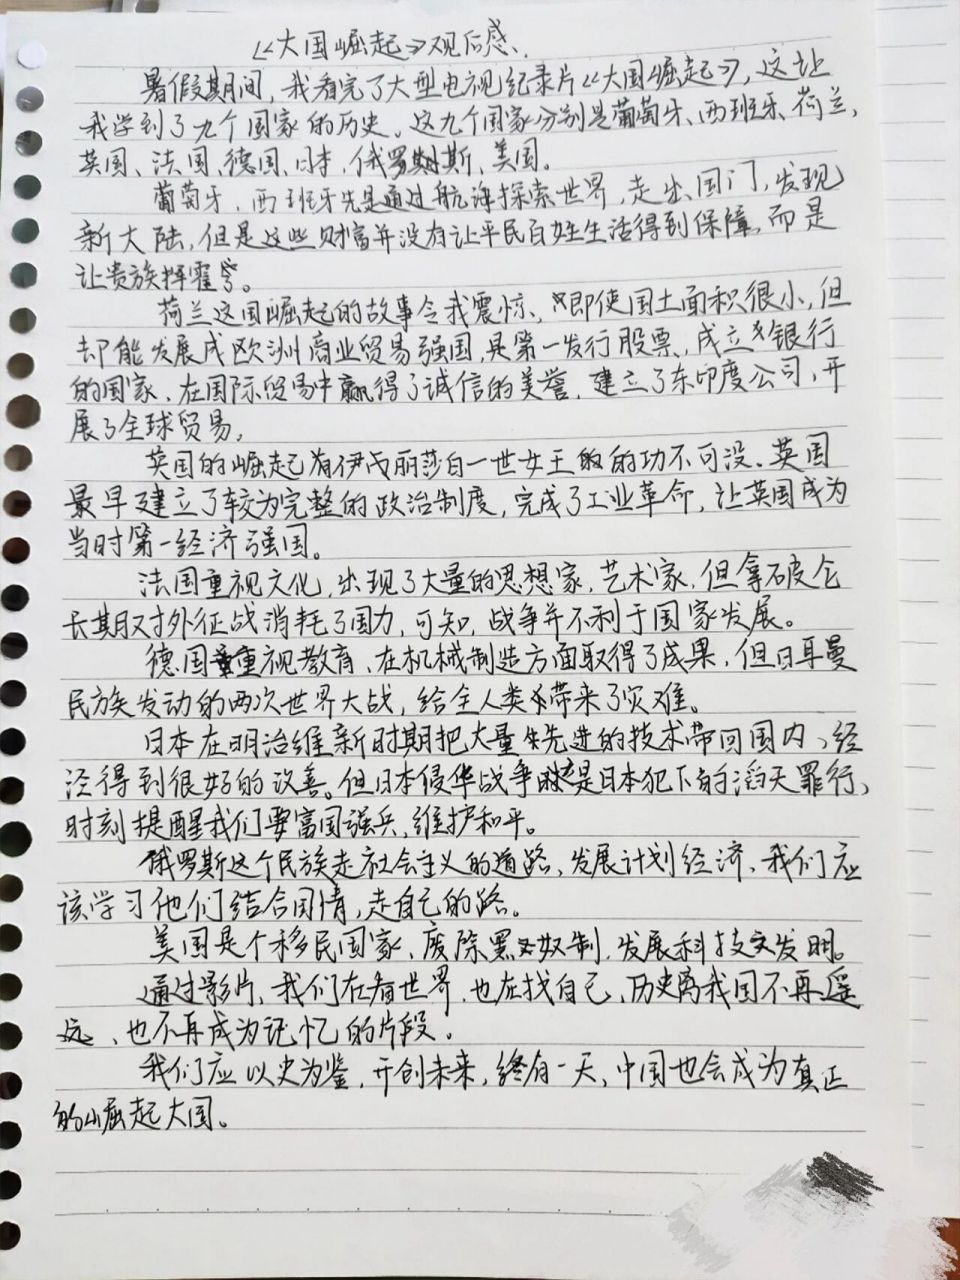 《大国崛起》观后感
暑假期间，我看完了大型电视纪录片《大国崛起》，这让
我学到了九个国家的历史。这九个国家分别是葡萄牙、西班牙、荷兰，
英国、法国、德国、日本，俄罗斯、美国。
葡萄牙、西班牙先是通过航海探索世界，走出国门，发现
新大陆，但是这些财富并没有让平民百姓生活得到保障，而是
让贵族挥霍。
荷兰这国崛起的故事令我震惊、即使国土面积很小，但
却能发展成欧洲商业贸易强国，是第一发行股票，成立银行
的国家、在国际贸易中赢得了诚信的美誉，建立了东印度公司，开
展了全球贸易，
英国的崛起有伊戈丽莎白一世女王的功不可没、英国
最早建立了较为完整的政治制度，完成了工业革命，让英国成为
当时第一经济强国。
法国重视文化，出现了大量的思想家，艺术家，但拿破仑
长期对外征战消耗了国力，可知，战争并不利于国家发展。
德国重视教育、在机械制造方面取得了成果，但日耳曼
民族发动的两次世界大战，给全人类带来了灾难。
日本在明治维新时期把大量先进的技术带回国内，经
泾得到很好的改善。但日本侵华战争是日本犯下的滔天罪行，
时刻提醒我们要富国强兵，维护和平。
俄罗斯这个民族走社会主义的道路，发展计划经济、我们应
该学习他们结合国情，走自己的路。
美国是个移民国家，废除黑奴制，发展科技文发明。
通过影片，我们在看世界，也在找自己，历史离我国不再遥
远、也不再成为记忆的片段。
我们应以史为鉴，开创未来，终有一天，中国也会成为真正
的崛起大国。